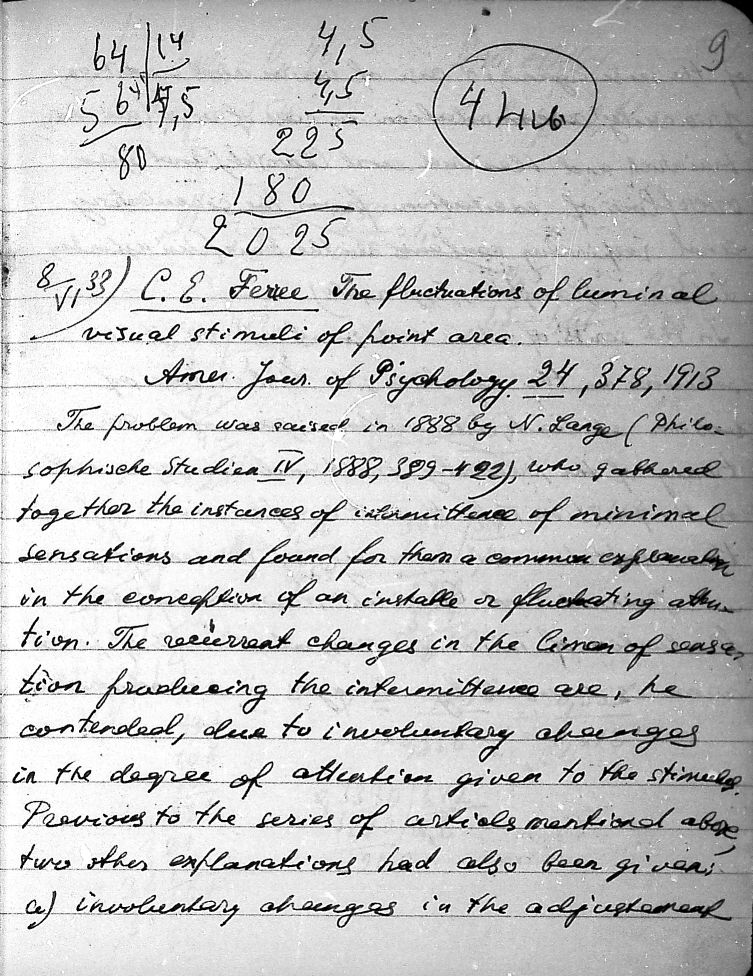 9
64 14
56 4,5
80
4,5
4,5
225
180
2025
8/VI,33) C. E. Ferree The fluctuations of luminal
visual stimuli of point area.
Amer. Jour. of Psychology. 24, 378, 1913
The problem was raised in 1888 by N. Lange (Philo-
sophische Studien IV, 1888, 389-422), who gathered
together the instances of intermittence of minimal
sensations and found for them a common explanation
in the conception of an instable or fluctuating atten-
tion. The recurrent changes in the limen of sensa-
tion producing the intermittence are, he
contended, due to involuntary changes
in the degree of attention given to the stimulus.
Previous to the series of articles mentioned above,
two other explanations had also been given:
a) involuntary changes in the adjustement